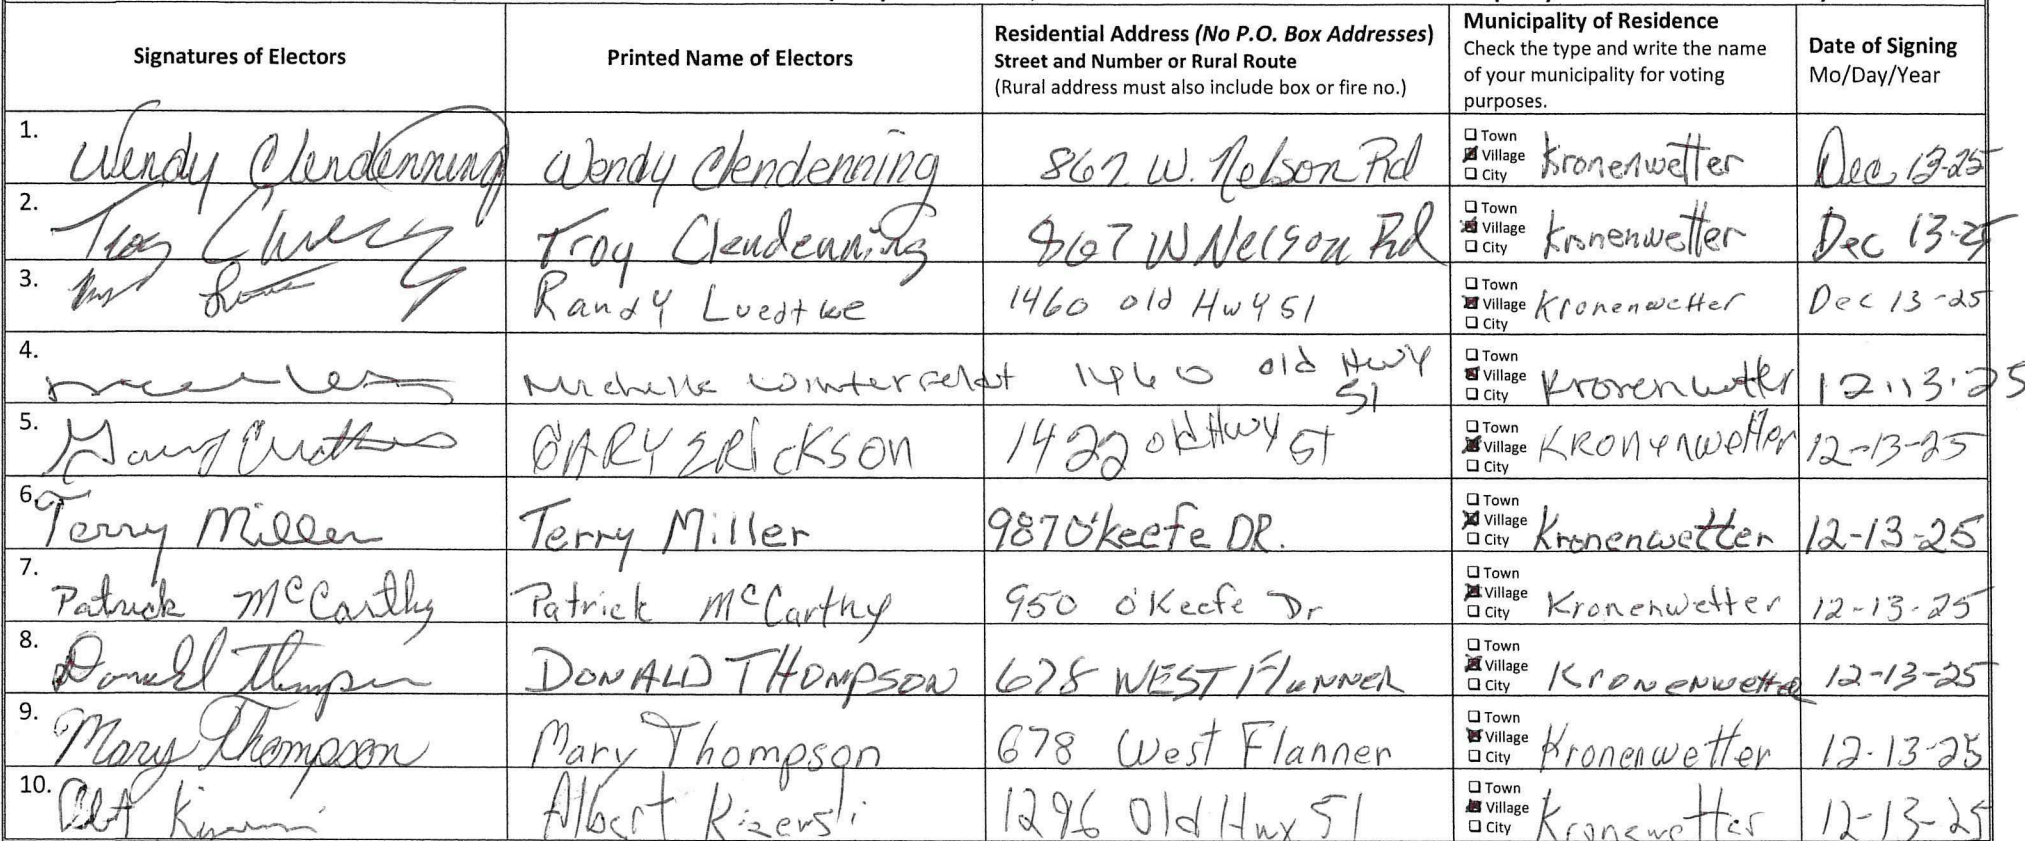 Signatures of Electors
Printed Name of Electors
Residential Address (No P.O. Box Addresses)
Street and Number or Rural Route
(Rural address must also include box or fire no.)
Municipality of Residence
Check the type and write the name
of your municipality for voting
purposes.
Date of Signing
Mo/Day/Year
1. Wendy Clendenning Wendy Clendenning 867 W. Nelson Rd Town Village City Kronenwetter Dec 13-25
2. Troy Troy Clendenning 867 W Nelson Rd Town Village City Kronenwetter Dec 13-25
3. Randy Luedtke 1460 old Hwy 51 Town Village City Kronenwetter Dec 13-25
4. Michelle Winterfeldt 1460 old Hwy 51 Town Village City Kronenwetter 12.13.25
5. Gary GARY ERICKSON 1422 old Hwy 51 Town Village City KRONENWetter 12-13-25
6. Terry Miller Terry Miller 987 O'keefe DR. Town Village City Kronenwetter 12-13-25
7. Patrick McCarthy Patrick McCarthy 950 O'Keefe Dr Town Village City Kronenwetter 12-13-25
8. Donald Thompson DONALD THOMPSON 678 WEST FlaNNER Town Village City Kronenwetter 12-13-25
9. Mary Thompson Mary Thompson 678 West Flanner Town Village City Kronenwetter 12-13-25
10. Albert 1296 Old Hwy 51 Town Village City Kronewetter 12-13-25